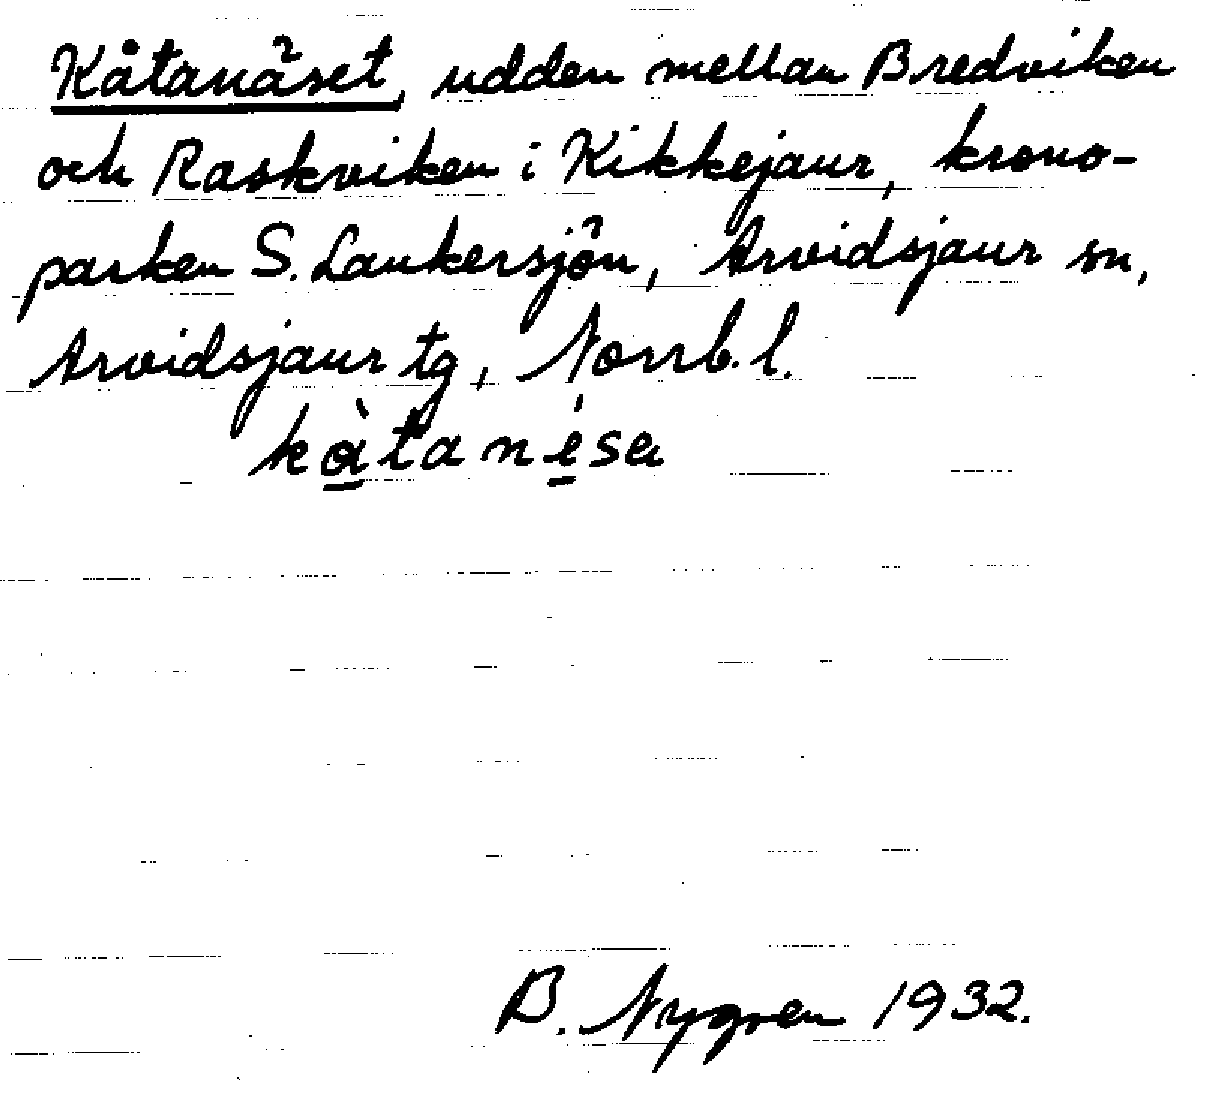 Kåtanäset, udden mellan Bredviken
och Raskviken i Kikkejaur, krono-
parken S. Laukersjön, Arvidsjaur sn,
Arvidsjaur tg, Norrb. l.
kàtanésɐ
B. Nygren 1932.